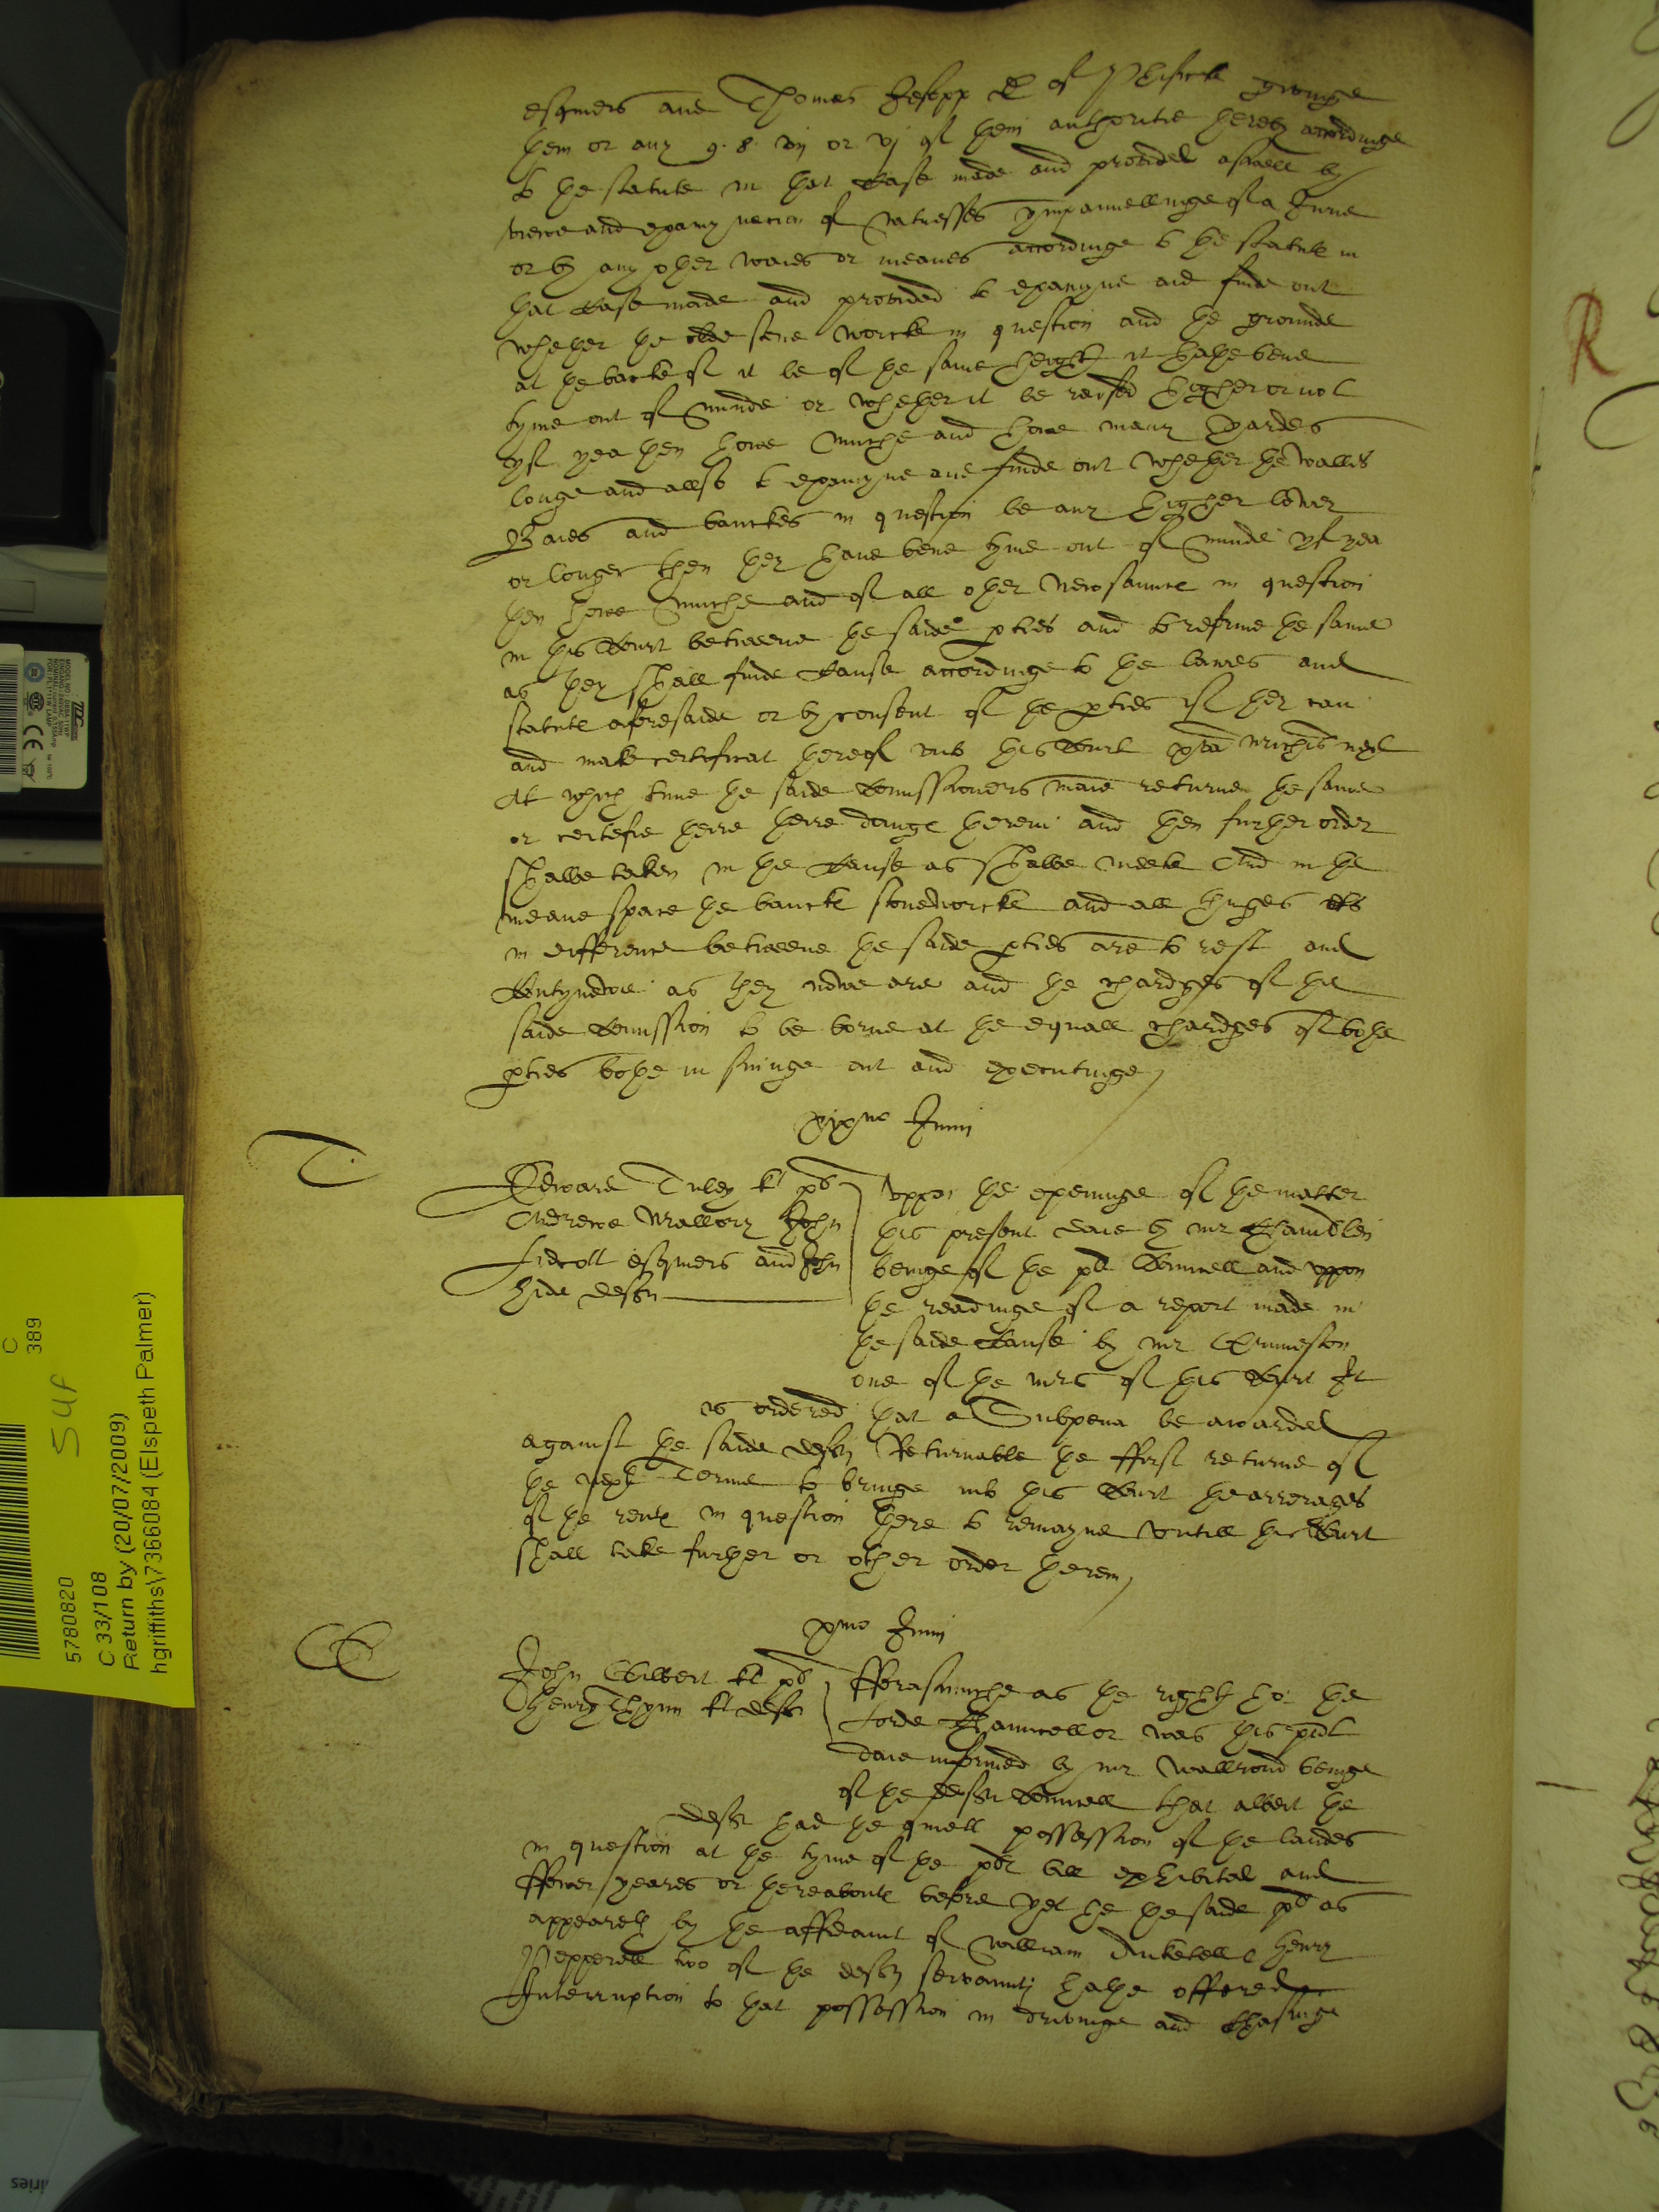 esquiers and Thomas Jesopp of gevinge
them or any 9. 8. vij or vj of them authoritie therby accordinge
to the statute in that case made and provided aswell by
viewe and examynacion of wittnesses ympannellinge of a Jurie
or by any other waies or meanes accordinge to the statute in
that case made and provided to examyne and finde out
whether the olde stone worcke in question and the grounde
at the backe of it be of the same height it hathe bene
tyme out of minde or whether it be reised higher or not
yf yea then howe muche and howe many yardes
longe and allso to examyne and finde out whether the wallis
Baies and banckes in question be any higher lower
or longer then they have bene tyme out of minde yf yea
then howe muche and of all other newsannce in question
in this Court betweene the saide pties and to reforme the same
as they shall finde cause accordinge to the lawes and
statute aforesaide or by consent of the pties if they can
and make certificat thereof into this Court next
At which time the saide Comissioners maie returne the same
or certefie theire theire doinge therein and then further order
shalbe taken in the cause as shalbe meete And in the
meane space the bancke stoneworcke and all thinges
in difference betweene the saide pties are to rest and
Contynewe as they nowe are and the chardges of the
saide Comission to be borne at the equall chardges of bothe
pties bothe in suinge out and executinge
Junij
T.
Edward Tuley kt plt
Andrewe Mallory John
Lidcott esquiers and John
Hide deftes
Uppon the openinge of the matter
this present daie by mr Chamblen
beinge of the plt Councell and uppon
the readinge of a report made in
the saide cause by mr Grimeston
one of the mrs of this Court It
is ordered that a Subpena be awarded
against the saide deftes Returnable the ffirst returne of
the next Terme to bringe into this Court the arrerages
of the rente in question there to remayne untill this Court
shall take further or other order therein
pmo Junij
G
John Gilbert kt plt
Henry Thynn kt deft
Fforasmuche as the right ho: the
Lorde Chauncellor was this pnt
daie informed by mr Wallrond beinge
of the deftes Councell that albeit the
deft had the quiett possession of the landes
in question at the tyme of the plts bill exhibited and
ffower yeares or thereaboute before yet he the saide plt as
appeareth by the affidavit of William Anketell Henry
Pepperell two of the deftes servaunts hathe offered
Interruption to that possession in drivinge and chasinge
R
C
389
SUF
5780820
C 33/108
Return by (20/07/2009)
hgriffiths\7366084 (Elspeth Palmer)